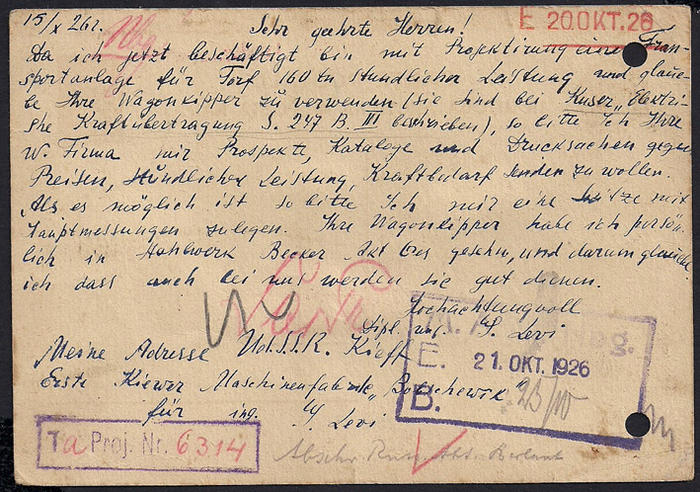 15/X 26г.
Sehr geehrte Herren!
E 20.OKT.26
Da ich jetzt beschäftigt bin mit Projektirung einer Tran-
sportanlage für Torf 160 tn stundlicher Leistung und glau-
be Ihre Wagonkipper zu verwenden (sie sind bei Kuser „Elektri-
she Kraftübertragung S. 247 B. III beschrieben), so bitte Ich Ihre
w. Firma mir Prospekte, Kataloge und Drucksachen gegen
Preisen, Stündlicher Leistung, Kraftbedarf senden zu wollen.
Als es möglich ist so bitte Ich mir eine mit
Hauptmessungen zulegen. Ihre Wagonkipper habe ich persön-
lich in Stahlwerk Becker Akt Ges gesehn, und darum glaube
ich dass auch bei uns werden sie gut dienen.
Hochachtungvoll
Dipl. ing. Levi
Meine Adresse U.d.S.S.R. Kieff
Erste Kiewer Maschinenfabrik „Bolschewik"
für ing. Levi
E. 21. OKT. 1926
B. 23/10
Ta Proj. Nr. 6314